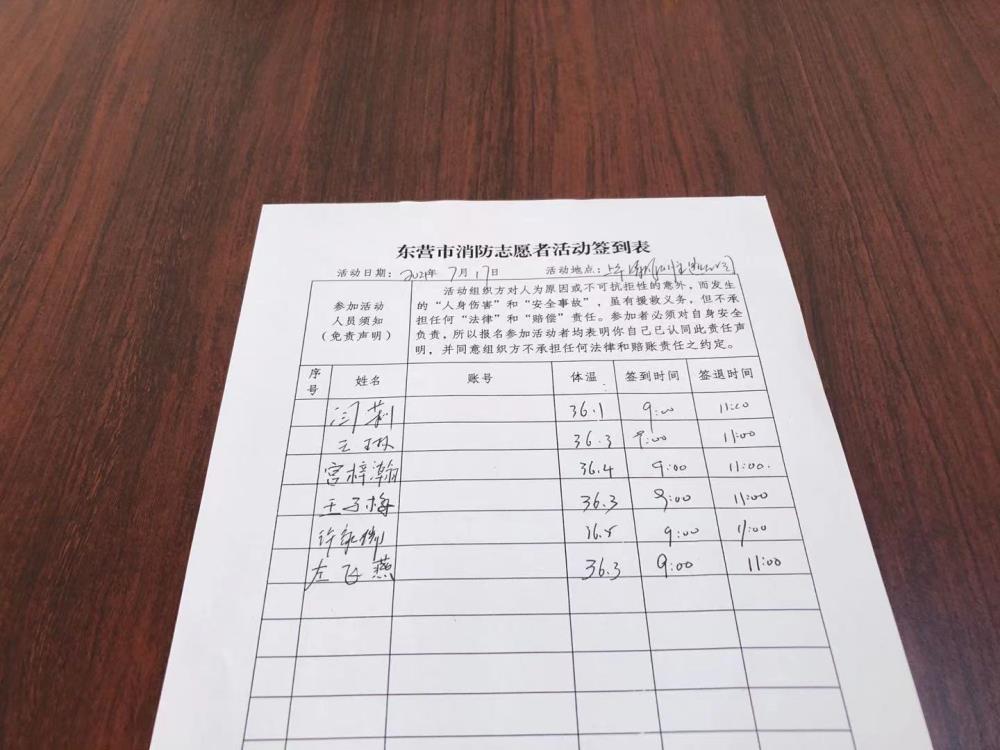 东营市消防志愿者活动签到表
活动日期：2021年 7月17日 活动地点：
参加活动人员须知（免责声明）
活动组织方对人为原因或不可抗拒性的意外，而发生
的“人身伤害”和“安全事故”，虽有援救义务，但不承
担任何“法律”和“赔偿”责任。参加者必须对自身安全
负责，所以报名参加活动者均表明你自己已认同此责任声
明，并同意组织方不承担任何法律和赔账责任之约定。
序号 姓名 账号 体温 签到时间 签退时间
闫莉 36.1 9:00 11:00
王琳 36.3 9:00 11:00
宫梓瀚 36.4 9:00 11:00.
王子梅 36.3 9:00 11:00
许 36.5 9:00 11:00
左飞燕 36.3 9:00 11:00